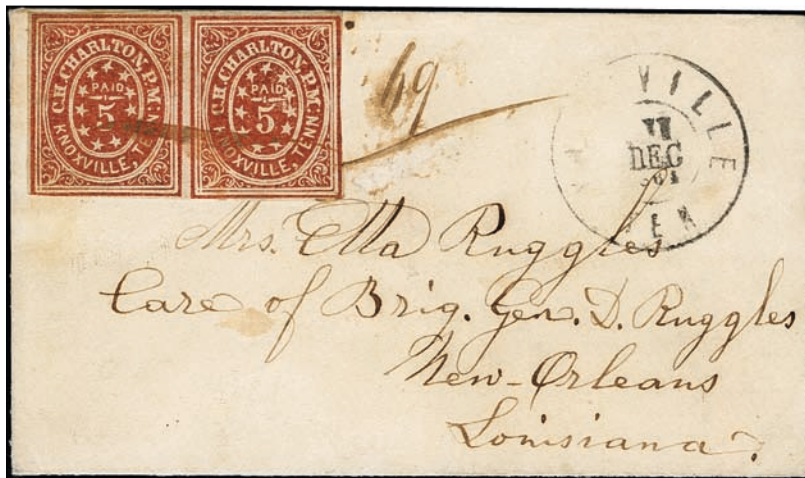 C.H. CHARLTON, P.M.
PAID
5
KNOXVILLE, TENN.
C.H. CHARLTON, P.M.
PAID
5
KNOXVILLE, TENN.
69
VILLE
11
DEC
TEN
Mrs. Ella Ruggles
Care of Brig. Gen. D. Ruggles
New-Orleans
Louisiana.